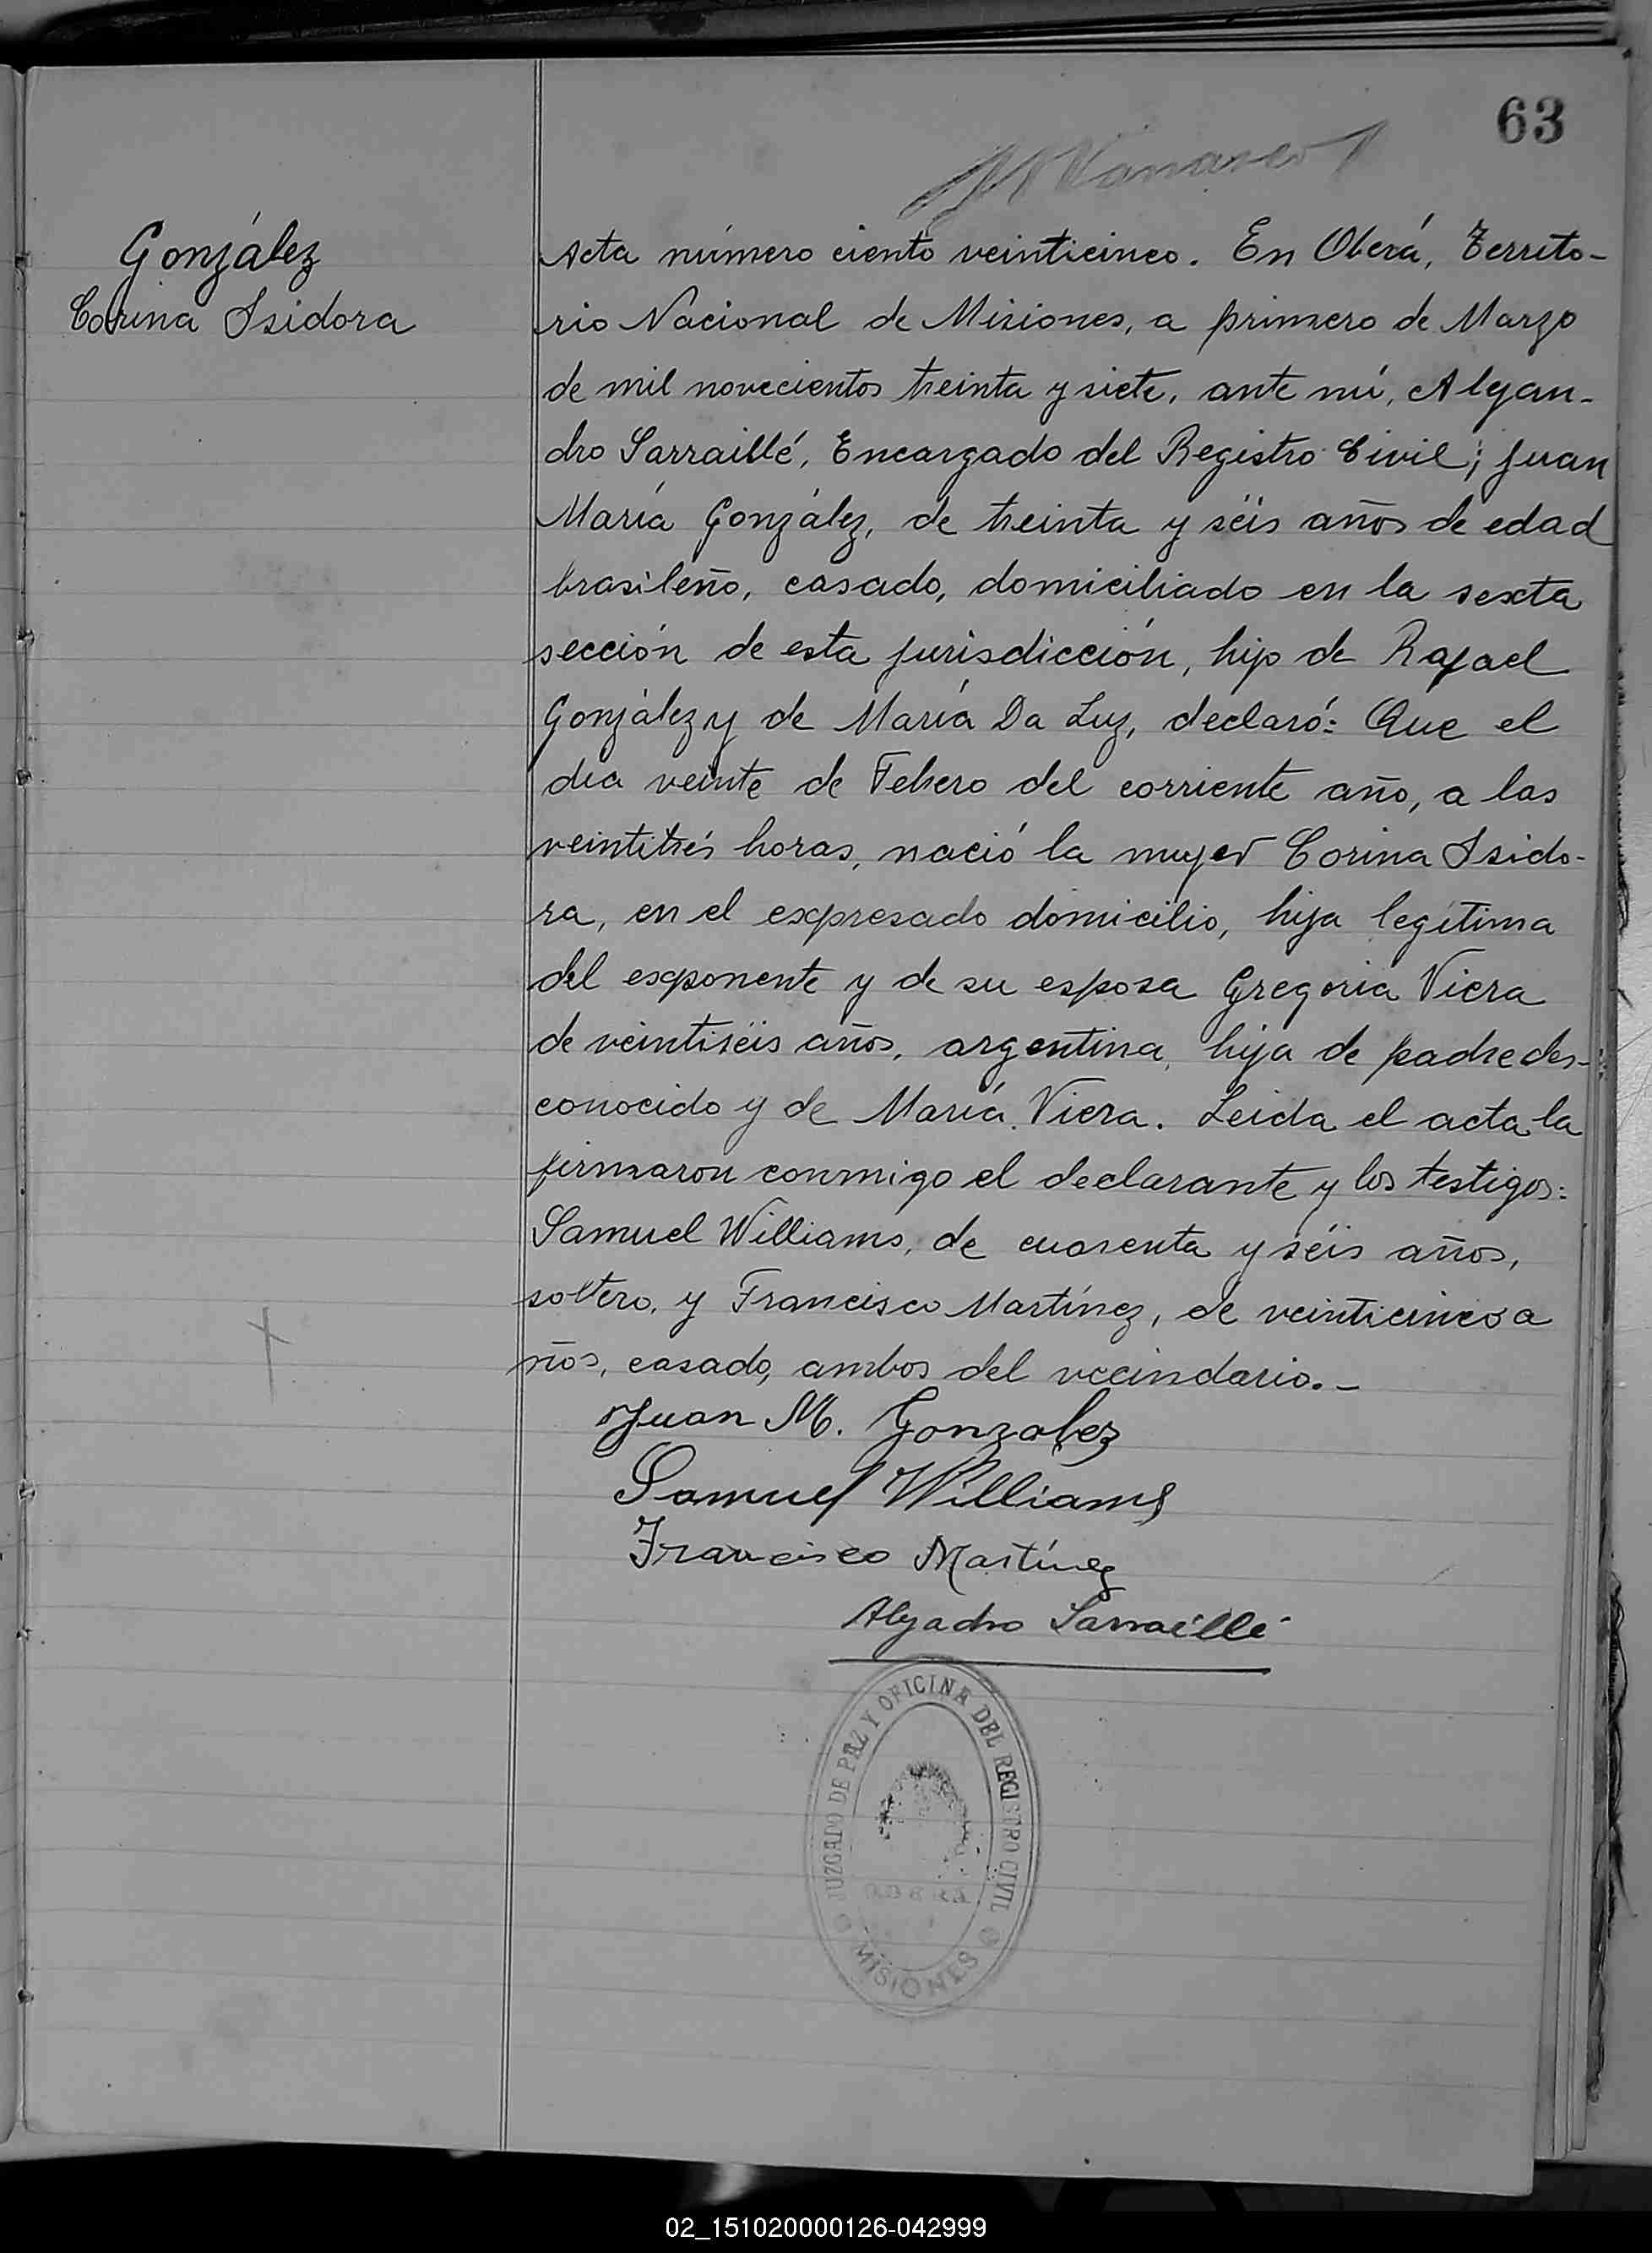 63
González
Corina Isidora
Acta número ciento veinticinco. En Oberá, Territo-
rio Nacional de Misiones, a primero de Marzo
de mil novecientos treinta y siete, ante mí, Alejan-
dro Sarraillé, Encargado del Registro Civil; Juan
María González, de treinta y séis años de edad
brasileño, casado, domiciliado en la sexta
sección de esta jurisdicción, hijo de Rafael
González y de María Da Luz, declaró: Que el
dia veinte de Febero del corriente año, a las
veintitrés horas, nació la mujer Corina Isido-
ra, en el expresado domicilio, hija legítima
del exponente y de su esposa Gregoria Viera
de veintiséis años, argentina, hija de padre des-
conocido y de María Viera. Leida el acta la
firmaron conmigo el declarante y los testigos:
Samuel Williams, de cuarenta y séis años,
soltero, y Francisco Martínez, de veinticinco a
ños, casado, ambos del vecindario.-
Juan M. Gonzalez
Samuel Williams
Francisco Martínez
Alejadro Sarraillé
JUZGADO DE PAZ Y OFICINA DEL REGISTRO CIVIL
OBERÁ
MISIONES
02_151020000126-042999